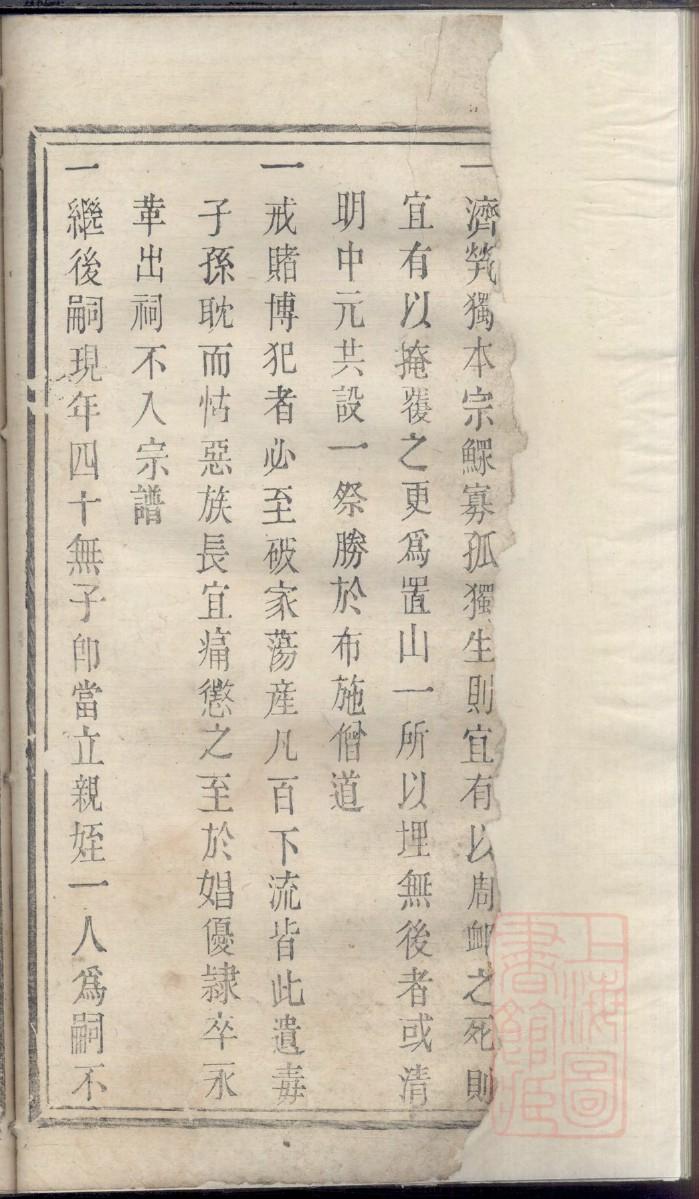 一濟煢獨本宗鰥寡孤獨生則宜有以周卹之死則
宜有以掩覆之更爲置山一所以埋無後者或清
明中元共設一祭勝於布施僧道
一戒賭博犯者必至破家蕩産凡百下流皆此遺毒
子孫耽而怙惡族長宜痛懲之至於娼優隷卒永
革出祠不入宗譜
一繼後嗣現年四十無子卽當立親姪一人爲嗣不
上海圖
書館藏